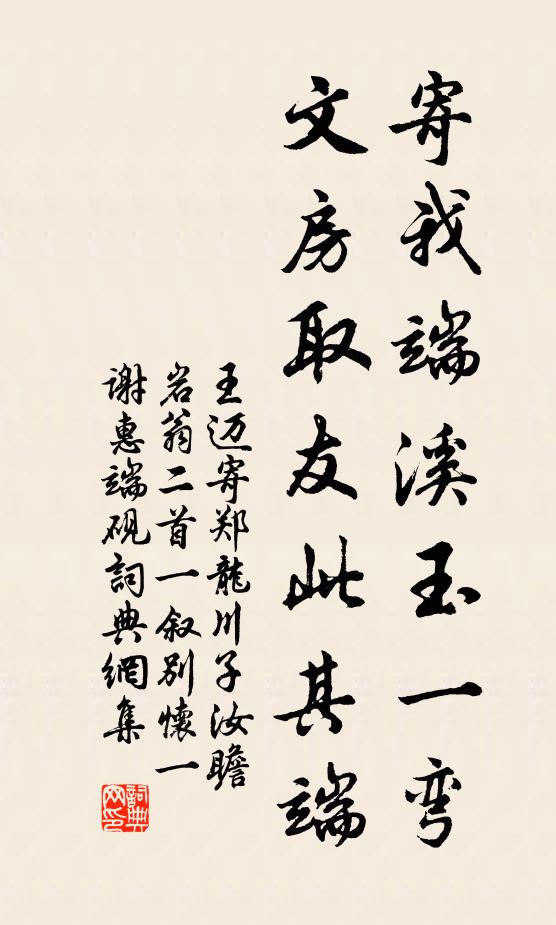 寄我端溪玉一弯
文房取友此其端
王迈寄郑龍川子汝瞻
岩翁二首一叙别懷一
谢惠端砚詞典網集
詞典网印